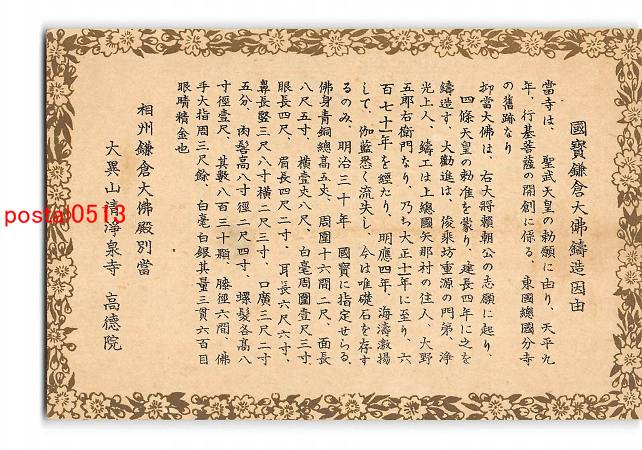 國寳鎌倉大佛鑄造因由
當寺は、聖武天皇の勅願に由り、天平九
年、行基菩薩の開創に係る、東國總國分寺
の舊跡なり
抑當大佛は、右大將賴朝公の志願に起り、
四條天皇の勅准を蒙り、建長四年に之を
鑄造す、大勸進は、俊乘坊重源の門弟、淨
光上人、鑄工は上總國矢那村の住人、大野
五郎右衛門なり、乃ち大正十一年に至り、六
百七十一年を經たり、明應四年、海濤激揚
して、伽藍悉く流失し、今は唯礎石を存す
るのみ、明治三十年 國寳に指定せらる、
佛身青銅總高五丈、周圍十六間二尺、面長
八尺五寸、橫壹丈八尺、白毫周圍壹尺三寸、
眼長四尺、眉長四尺二寸、耳長六尺六寸、
鼻長竪三尺八寸橫二尺三寸、口廣三尺二寸
五分、肉髻高八寸徑二尺四寸、螺髮各高八
寸徑壹尺、其數八百三十顆、膝徑六間、佛
手大指周三尺餘、白毫白銀其量三貫六百目
眼睛精金也
相州鎌倉大佛殿別當
大異山清淨泉寺 高德院
postal0513